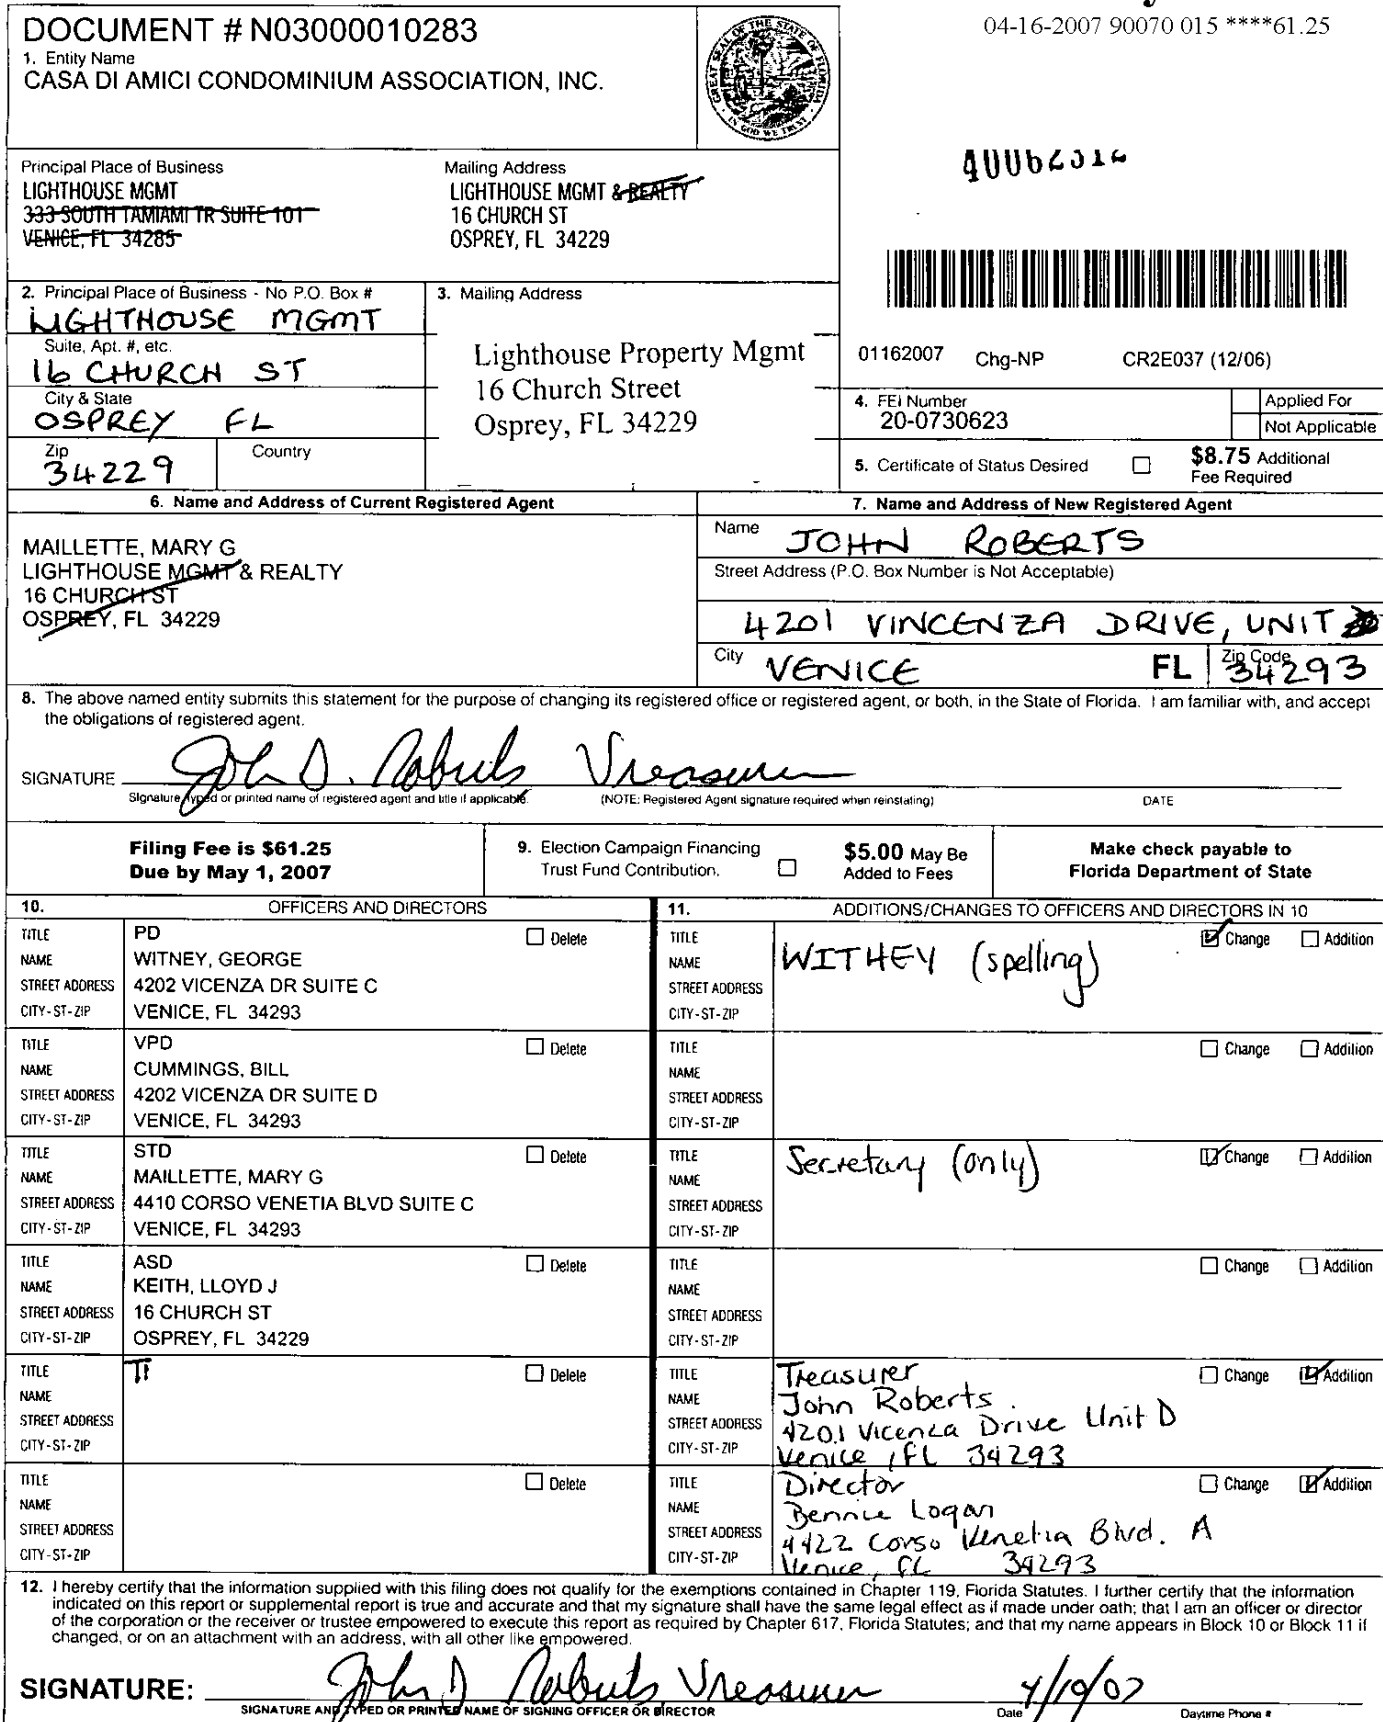 04-16-2007 90070 015 ****61.25
DOCUMENT # N03000010283
1. Entity Name
CASA DI AMICI CONDOMINIUM ASSOCIATION, INC.
GREAT SEAL OF THE STATE OF FLORIDA
IN GOD WE TRUST
Principal Place of Business
LIGHTHOUSE MGMT
333 SOUTH TAMIAMI TR SUITE 101
VENICE, FL 34285
Mailing Address
LIGHTHOUSE MGMT & REALTY
16 CHURCH ST
OSPREY, FL 34229
2. Principal Place of Business - No P.O. Box #
LIGHTHOUSE MGMT
Suite, Apt. #, etc.
16 CHURCH ST
City & State
OSPREY FL
Zip
34229
Country
3. Mailing Address
Lighthouse Property Mgmt
16 Church Street
Osprey, FL 34229
01162007 Chg-NP CR2E037 (12/06)
4. FEI Number
20-0730623
Applied For
Not Applicable
5. Certificate of Status Desired
$8.75 Additional
Fee Required
6. Name and Address of Current Registered Agent
MAILLETTE, MARY G
LIGHTHOUSE MGMT & REALTY
16 CHURCH ST
OSPREY, FL 34229
7. Name and Address of New Registered Agent
Name JOHN ROBERTS
Street Address (P.O. Box Number is Not Acceptable)
4201 VINCENZA DRIVE, UNIT
City VENICE FL Zip Code 34293
8. The above named entity submits this statement for the purpose of changing its registered office or registered agent, or both, in the State of Florida. I am familiar with, and accept
the obligations of registered agent.
SIGNATURE John D. Roberts Treasurer
Signature, typed or printed name of registered agent and title if applicable. (NOTE: Registered Agent signature required when reinstating) DATE
Filing Fee is $61.25
Due by May 1, 2007
9. Election Campaign Financing
Trust Fund Contribution.
$5.00 May Be
Added to Fees
Make check payable to
Florida Department of State
10. OFFICERS AND DIRECTORS
11. ADDITIONS/CHANGES TO OFFICERS AND DIRECTORS IN 10
TITLE PD Delete
NAME WITNEY, GEORGE
STREET ADDRESS 4202 VICENZA DR SUITE C
CITY-ST-ZIP VENICE, FL 34293
TITLE Change Addition
NAME WITHEY (spelling)
STREET ADDRESS
CITY-ST-ZIP
TITLE VPD Delete
NAME CUMMINGS, BILL
STREET ADDRESS 4202 VICENZA DR SUITE D
CITY-ST-ZIP VENICE, FL 34293
TITLE Change Addition
NAME
STREET ADDRESS
CITY-ST-ZIP
TITLE STD Delete
NAME MAILLETTE, MARY G
STREET ADDRESS 4410 CORSO VENETIA BLVD SUITE C
CITY-ST-ZIP VENICE, FL 34293
TITLE Secretary (only) Change Addition
NAME
STREET ADDRESS
CITY-ST-ZIP
TITLE ASD Delete
NAME KEITH, LLOYD J
STREET ADDRESS 16 CHURCH ST
CITY-ST-ZIP OSPREY, FL 34229
TITLE Change Addition
NAME
STREET ADDRESS
CITY-ST-ZIP
TITLE Delete
NAME
STREET ADDRESS
CITY-ST-ZIP
TITLE Treasurer Change Addition
NAME John Roberts
STREET ADDRESS 4201 Vicenza Drive Unit D
CITY-ST-ZIP Venice, FL 34293
TITLE Delete
NAME
STREET ADDRESS
CITY-ST-ZIP
TITLE Director Change Addition
NAME Bennie Logan
STREET ADDRESS 4422 Corso Venetia Blvd. A
CITY-ST-ZIP Venice, FL 34293
12. I hereby certify that the information supplied with this filing does not qualify for the exemptions contained in Chapter 119, Florida Statutes. I further certify that the information
indicated on this report or supplemental report is true and accurate and that my signature shall have the same legal effect as if made under oath; that I am an officer or director
of the corporation or the receiver or trustee empowered to execute this report as required by Chapter 617, Florida Statutes; and that my name appears in Block 10 or Block 11 if
changed, or on an attachment with an address, with all other like empowered.
SIGNATURE: John D Roberts, Treasurer 4/10/07
SIGNATURE AND TYPED OR PRINTED NAME OF SIGNING OFFICER OR DIRECTOR Date Daytime Phone #